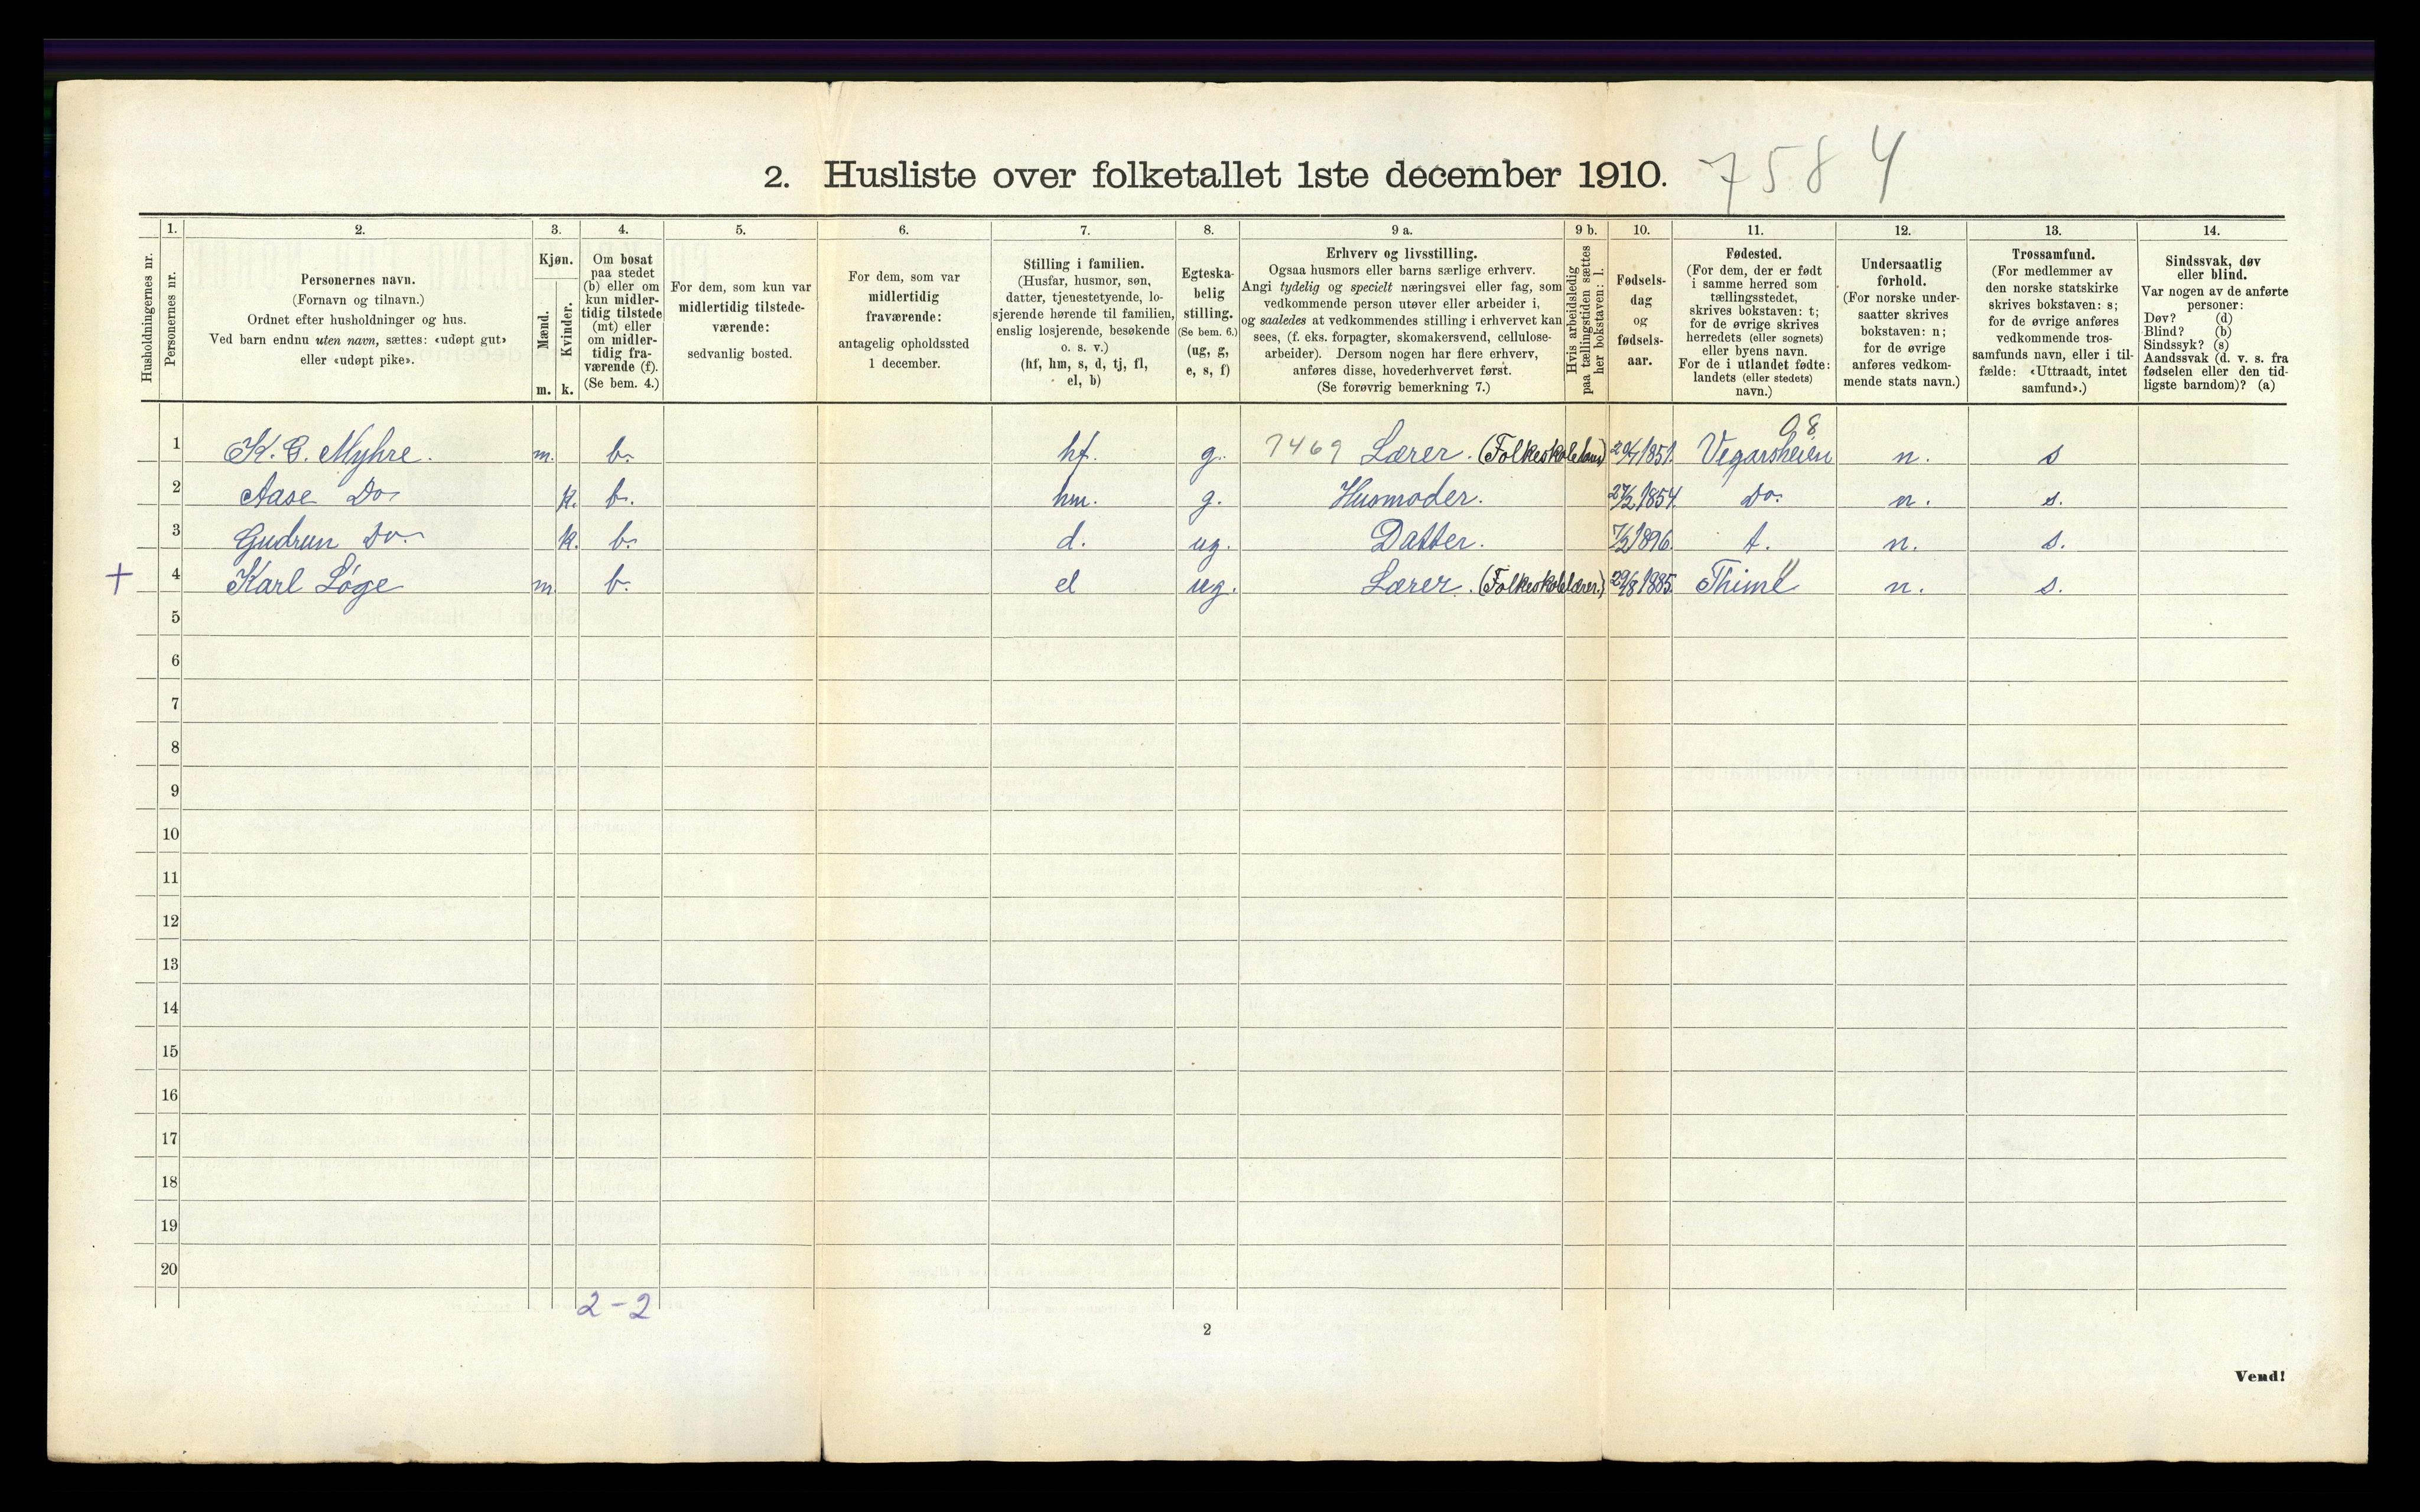 2. Husliste over folketallet 1ste december 1910. 7584
Husholdningernes nr.
1. Personernes nr.
2. Personernes navn.
(Fornavn og tilnavn.)
Ordnet efter husholdninger og hus.
Ved barn endnu uten navn, sættes: «udøpt gut»
eller «udøpt pike».
3. Kjøn.
Mænd. m.
Kvinder. k.
4. Om bosat
paa stedet
(b) eller om
kun midler-
tidig tilstede
(mt) eller
om midler-
tidig fra-
værende (f).
(Se bem. 4.)
5. For dem, som kun var
midlertidig tilstede-
værende:
sedvanlig bosted.
6. For dem, som var
midlertidig
fraværende:
antagelig opholdssted
1 december.
7. Stilling i familien.
(Husfar, husmor, søn,
datter, tjenestetyende, lo-
sjerende hørende til familien,
enslig losjerende, besøkende
o. s. v.)
(hf, hm, s, d, tj, fl,
el, b)
8. Egteska-
belig
stilling.
(Se bem. 6.)
(ug, g,
e, s, f)
9 a. Erhverv og livsstilling.
Ogsaa husmors eller barns særlige erhverv.
Angi tydelig og specielt næringsvei eller fag, som
vedkommende person utøver eller arbeider i,
og saaledes at vedkommendes stilling i erhvervet kan
sees, (f. eks. forpagter, skomakersvend, cellulose-
arbeider). Dersom nogen har flere erhverv,
anføres disse, hovederhvervet først.
(Se forøvrig bemerkning 7.)
9 b. Hvis arbeidsledig
paa tællingstiden sættes
her bokstaven: l.
10. Fødsels-
dag
og
fødsels-
aar.
11. Fødested.
(For dem, der er født
i samme herred som
tællingsstedet,
skrives bokstaven: t;
for de øvrige skrives
herredets (eller sognets)
eller byens navn.
For de i utlandet fødte:
landets (eller stedets)
navn.)
12. Undersaatlig
forhold.
(For norske under-
saatter skrives
bokstaven: n;
for de øvrige
anføres vedkom-
mende stats navn.)
13. Trossamfund.
(For medlemmer av
den norske statskirke
skrives bokstaven: s;
for de øvrige anføres
vedkommende tros-
samfunds navn, eller i til-
fælde: «Uttraadt, intet
samfund».)
14. Sindssvak, døv
eller blind.
Var nogen av de anførte
personer:
Døv? (d)
Blind? (b)
Sindssyk? (s)
Aandssvak (d. v. s. fra
fødselen eller den tid-
ligste barndom)? (a)
1 K. G. Myhre. m. b. hf. g. 7469 Lærer. 1851. Vegarsheien 08 n. s
2 Aase Do k. b. hm. g. Husmoder. 27/2 1854. Do. n. s.
3 Gudrun Do. k. b. d. ug. Datter. 7/2 1896. t. n. s.
+ 4 Karl Løge m. b. el ug. Lærer. (Folkeskolelærer.) 29/8 1885. Thime n. s.
5
6
7
8
9
10
11
12
13
14
15
16
17
18
19
20
2-2
2
Vend!